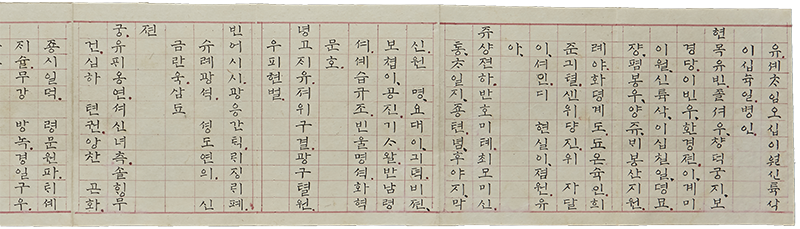 유셰ᄎᆞ임오십이월신륙삭
이십뉵일병인
현목유빈풀셔우창덕궁지보
경당이빈우환경젼이게미
이월신륙삭이십칠일뎡묘
쟝폄봉우양쥬비봉산지원
례야화뎡계도됴온슉인희
쥰긔텰신위당진위 자달
이셔인디 현실이졈원유
아
쥬샹뎐하반호미례최모미신
통ᄎᆞ일지죵텬념후야지막
신원 명요대이지뎍비젼
보쳡이용진기ᄉᆞ왈반남령
셔예습규조빈울명셕화혁
문호
명고지유져위구결광구텰원
우피현벌
빈어시시광응간틱리징리폐
슈례광셕 셩도연의 신
금란욱삼됴
젼
궁유피옹연셔신녀측슐힝무
건심하 텬권앙찬 곤화
죵시일덕 령문원파티셰
지슐무강 방녹경일구우